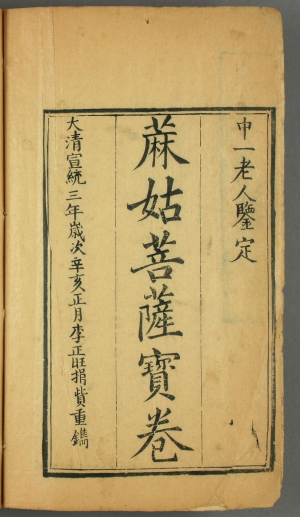 中一老人鑒定
蔴姑菩薩寶卷
大清宣統三年歲次辛亥正月李正旺捐貲重鐫